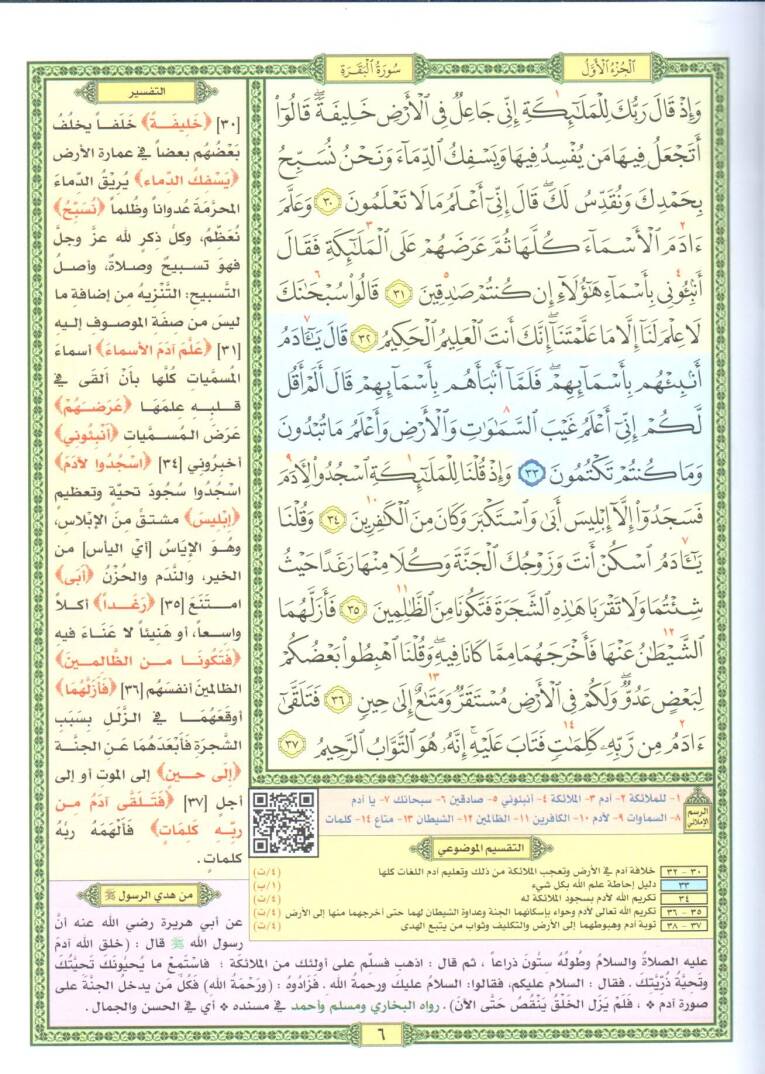 الجزء الأول
سورة البقرة
وَإِذْ قَالَ رَبُّكَ لِلْمَلَٰٓئِكَةِ إِنِّي جَاعِلٌ فِي الْأَرْضِ خَلِيفَةً ۖ قَالُوٓا۟
أَتَجْعَلُ فِيهَا مَن يُفْسِدُ فِيهَا وَيَسْفِكُ الدِّمَآءَ وَنَحْنُ نُسَبِّحُ
بِحَمْدِكَ وَنُقَدِّسُ لَكَ ۖ قَالَ إِنِّيٓ أَعْلَمُ مَا لَا تَعْلَمُونَ ٣٠ وَعَلَّمَ
ءَادَمَ الْأَسْمَآءَ كُلَّهَا ثُمَّ عَرَضَهُمْ عَلَى الْمَلَٰٓئِكَةِ فَقَالَ
أَنۢبِـُٔونِي بِأَسْمَآءِ هَٰٓؤُلَآءِ إِن كُنتُمْ صَٰدِقِينَ ٣١ قَالُوا۟ سُبْحَٰنَكَ
لَا عِلْمَ لَنَآ إِلَّا مَا عَلَّمْتَنَآ ۖ إِنَّكَ أَنتَ الْعَلِيمُ الْحَكِيمُ ٣٢ قَالَ يَٰٓـَٔادَمُ
أَنۢبِئْهُم بِأَسْمَآئِهِمْ ۖ فَلَمَّآ أَنۢبَأَهُم بِأَسْمَآئِهِمْ قَالَ أَلَمْ أَقُل
لَّكُمْ إِنِّيٓ أَعْلَمُ غَيْبَ السَّمَٰوَٰتِ وَالْأَرْضِ وَأَعْلَمُ مَا تُبْدُونَ
وَمَا كُنتُمْ تَكْتُمُونَ ٣٣ وَإِذْ قُلْنَا لِلْمَلَٰٓئِكَةِ اسْجُدُوا۟ لِـَٔادَمَ
فَسَجَدُوٓا۟ إِلَّآ إِبْلِيسَ أَبَىٰ وَاسْتَكْبَرَ وَكَانَ مِنَ الْكَٰفِرِينَ ٣٤ وَقُلْنَا
يَٰٓـَٔادَمُ اسْكُنْ أَنتَ وَزَوْجُكَ الْجَنَّةَ وَكُلَا مِنْهَا رَغَدًا حَيْثُ
شِئْتُمَا وَلَا تَقْرَبَا هَٰذِهِ الشَّجَرَةَ فَتَكُونَا مِنَ الظَّٰلِمِينَ ٣٥ فَأَزَلَّهُمَا
الشَّيْطَٰنُ عَنْهَا فَأَخْرَجَهُمَا مِمَّا كَانَا فِيهِ ۖ وَقُلْنَا اهْبِطُوا۟ بَعْضُكُمْ
لِبَعْضٍ عَدُوٌّ ۖ وَلَكُمْ فِي الْأَرْضِ مُسْتَقَرٌّ وَمَتَٰعٌ إِلَىٰ حِينٍ ٣٦ فَتَلَقَّىٰٓ
ءَادَمُ مِن رَّبِّهِۦ كَلِمَٰتٍ فَتَابَ عَلَيْهِ ۚ إِنَّهُۥ هُوَ التَّوَّابُ الرَّحِيمُ ٣٧
التفسير
[٣٠] ﴿خَلِيفَةً﴾ خَلَفاً يخلُفُ
بَعْضُهُم بعضاً في عمارة الأرض
﴿يَسْفكُ الدِّماء﴾ يُرِيْقُ الدِّماءَ
المحرَّمَةَ عُدواناً وظُلماً ﴿نُسَبِّحُ﴾
نُعَظِّمُ، وكلُّ ذكرٍ لله عزَّ وجلَّ
فهوَ تسبيحٌ وصلاةٌ، وأصلُ
التَّسبيح: التَّنْزيهُ من إضافة ما
ليسَ من صفَة الموصوف إليه
[٣١] ﴿عَلَّمَ آدَمَ الأسماءَ﴾ أسماءَ
المُسَمياتِ كُلَّها بأنْ ألقى في
قلبه علمَهَا ﴿عَرَضَهُمْ﴾
عَرَضَ المُسَمَّيات ﴿أنْبِئُوني﴾
أخبروني [٣٤] ﴿اسْجُدُوا لآدَمَ﴾
اسْجُدُوا سُجُودَ تحيَّةٍ وتعظيم
﴿إبْليسَ﴾ مشتقٌّ منَ الإبْلاسِ،
وهُوَ الإيَاسُ [أي اليأس] من
الخير، والنَّدَم والحُزْنُ ﴿أَبَى﴾
امتَنَعَ [٣٥] ﴿رَغَداً﴾ أكلاً
واسعاً، أو هَنيئاً لا عَنَاءَ فيه
﴿فَتَكُونَا من الظالمينَ﴾
الظالمينَ أنفسَهُم [٣٦] ﴿فَأَزَلَّهُمَا﴾
أوقَعَهُمَا في الزَّلَلِ بِسَبَبِ
الشَّجرَةِ فَأَبْعَدَهُمَا عَنِ الجنَّة
﴿إلى حينٍ﴾ إلى الموتِ أو إلى
أجلٍ [٣٧] ﴿فَتَلَقَّى آدَمُ من
ربِّه كَلمَاتٍ﴾ فَألْهَمَهُ ربُّهُ
كلماتٍ.
الرسم الإملائي
١- للملائكة ٢- آدم ٣- الملائكة ٤- أنبئوني ٥- صادقين ٦- سبحانك ٧- يا آدم
٨- السماوات ٩- لآدم ١٠- الكافرين ١١- الظالمين ١٢- الشيطان ١٣- متاع ١٤- كلمات
التقسيم الموضوعي
٣٠ - ٣٢ خلافة آدم في الأرض وتعجب الملائكة من ذلك وتعليم آدم اللغات كلها (٤/ت)
٣٣ دليل إحاطة علم الله بكل شيء (١/ب)
٣٤ تكريم الله لآدم بسجود الملائكة له (٤/ت)
٣٥ - ٣٦ تكريم الله تعالى لآدم وحواء بإسكانهما الجنة وعداوة الشيطان لهما حتى أخرجهما منها إلى الأرض (٤/ت)
٣٧ - ٣٨ توبة آدم وهبوطهما إلى الأرض والتكليف وثواب من يتبع الهدى (٤/ت)
من هدي الرسول ﷺ
عن أبي هريرة رضي الله عنه أنَّ
رسول الله ﷺ قال : (خلق الله آدمَ
عليه الصلاةُ والسلامُ وطُولُهُ ستُّونَ ذراعاً ، ثم قال : اذهب فسلِّم على أولئك من الملائكة ؛ فاستَمِعْ ما يُحيُّونكَ تحيَّتُكَ
وتَحيَّةُ ذُرِّيَّتِكَ . فقال : السلام عليكم، فقالوا: السلامُ عليكَ ورحمة الله . فزادُوهُ : (ورَحْمَةُ الله) فكُلُّ مَن يدخلُ الجنَّةَ على
صورة آدمَ * ، فلَمْ يَزَلِ الخَلْقُ يَنْقُصُ حَتَّى الآنَ). رواه البخاري ومسلم وأحمد في مسنده * أي في الحسن والجمال.
٦